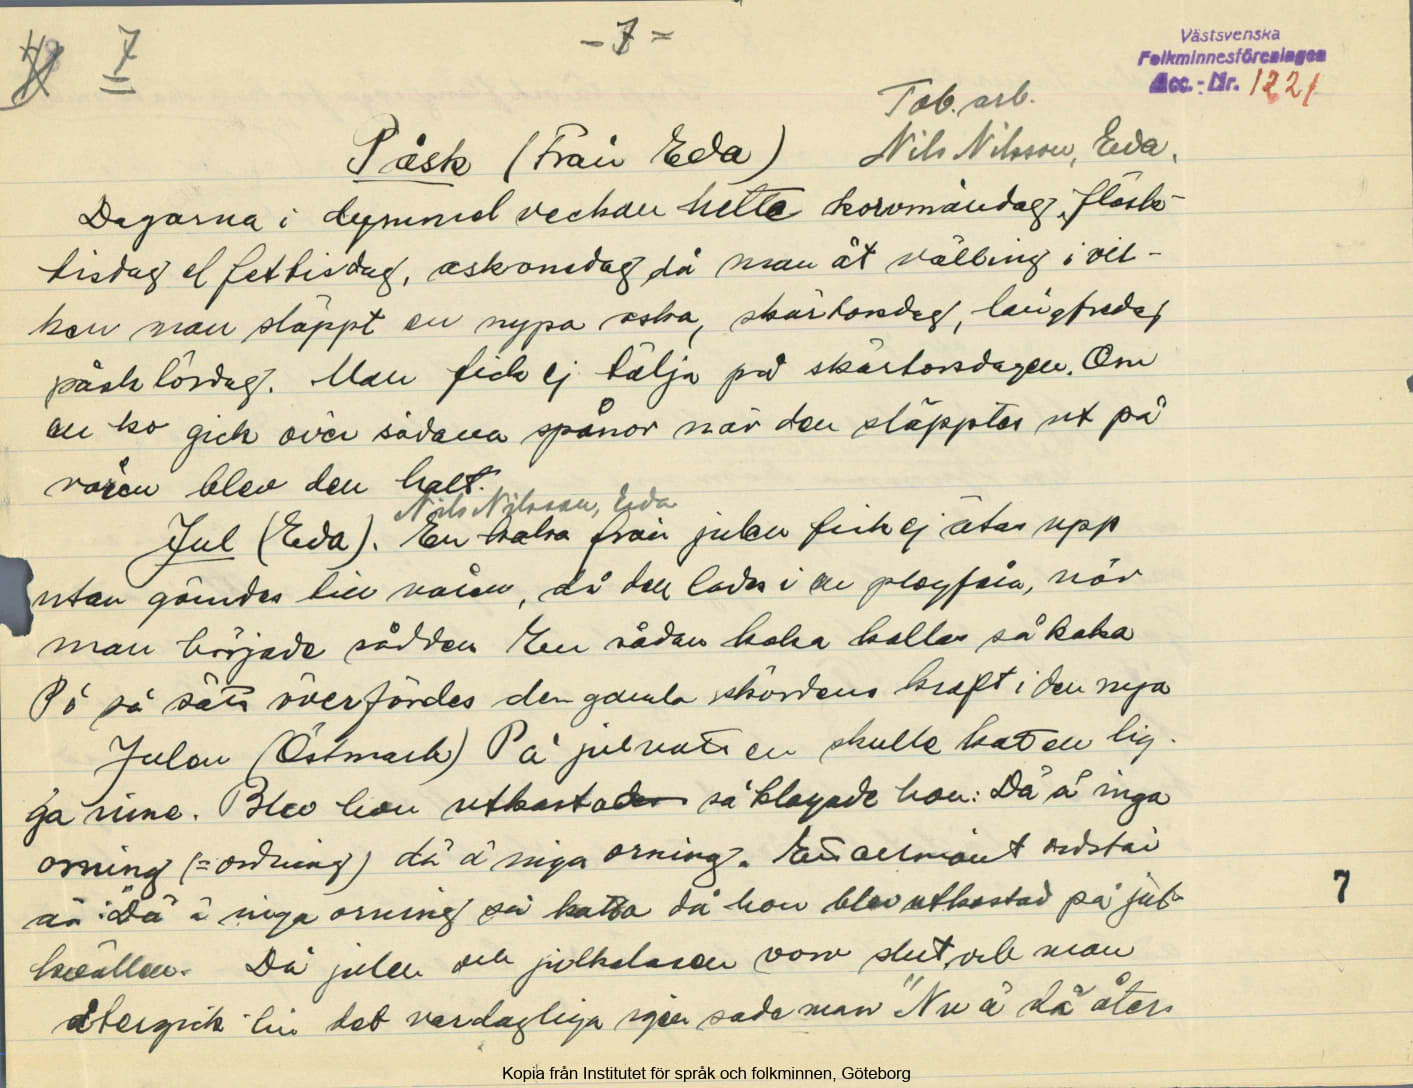 7
- 7 =
Västsvenska
Folkminnesföreningen
Acc.-Nr. 1221
Tob. arb.
Nils Nilsson, Eda.
Påsk (Från Eda)
Dagarna i dymmelveckan hette korvmåndag, fläsk-
tisdag el fettisdag, askonsdag då man åt välling i vil-
ken man släppt en nypa aska, skärtorsdag, långfredag
påsklördag. Man fick ej tälja på skärtorsdagen. Om
en ko gick över sådana spånor när den släpptes ut på
våren blev den halt.
Nils Nilsson, Eda
Jul (Eda). En kaka från julen fick ej ätas upp
utan gömdes till våren, då den lades i en plogfåra, när
man började sådden En sådan kaka kallas såkaka
På så sätt överfördes den gamla skördens kraft i den nya
Julen (Östmark) På julnatten skulle katten lig-
ga inne. Blev hon utkastad så klagade hon: Dä ä inga
orning (=ordning) dä ä inga orning. Ett allmänt ordstäv
är: "Dä ä inga orning sa katta då hon blev utkastad på jul-
kvällen. Då julen och julkalasen voro slut och man
återgick till det vardagliga igen sade man "Nu ä dä åter
7
Kopia från Institutet för språk och folkminnen, Göteborg